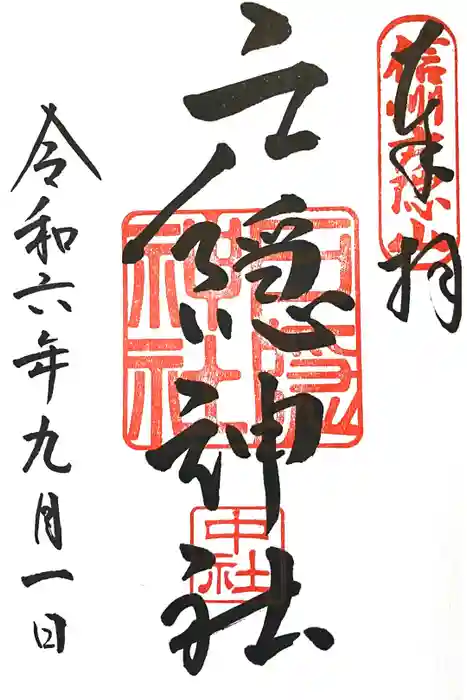 奉拝
信州戸隠山
戸隠神社
戸隠神社中社
中社
令和六年九月一日